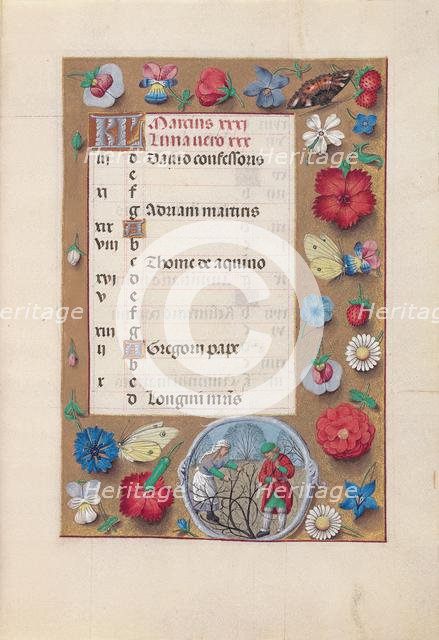 KL Marcius xxxi
Luna uero xxx
iii d Dauid confessoris
e
xi f
g Adriani martiris
xix A
viii b
c Thome de aquino
xvi d
v e
f
xiii g
ii A Gregorii pape
b
x c
d Longini mr̄is
©
Heritage
Heritage
Heritage
Heritage
Heritage
Heritage